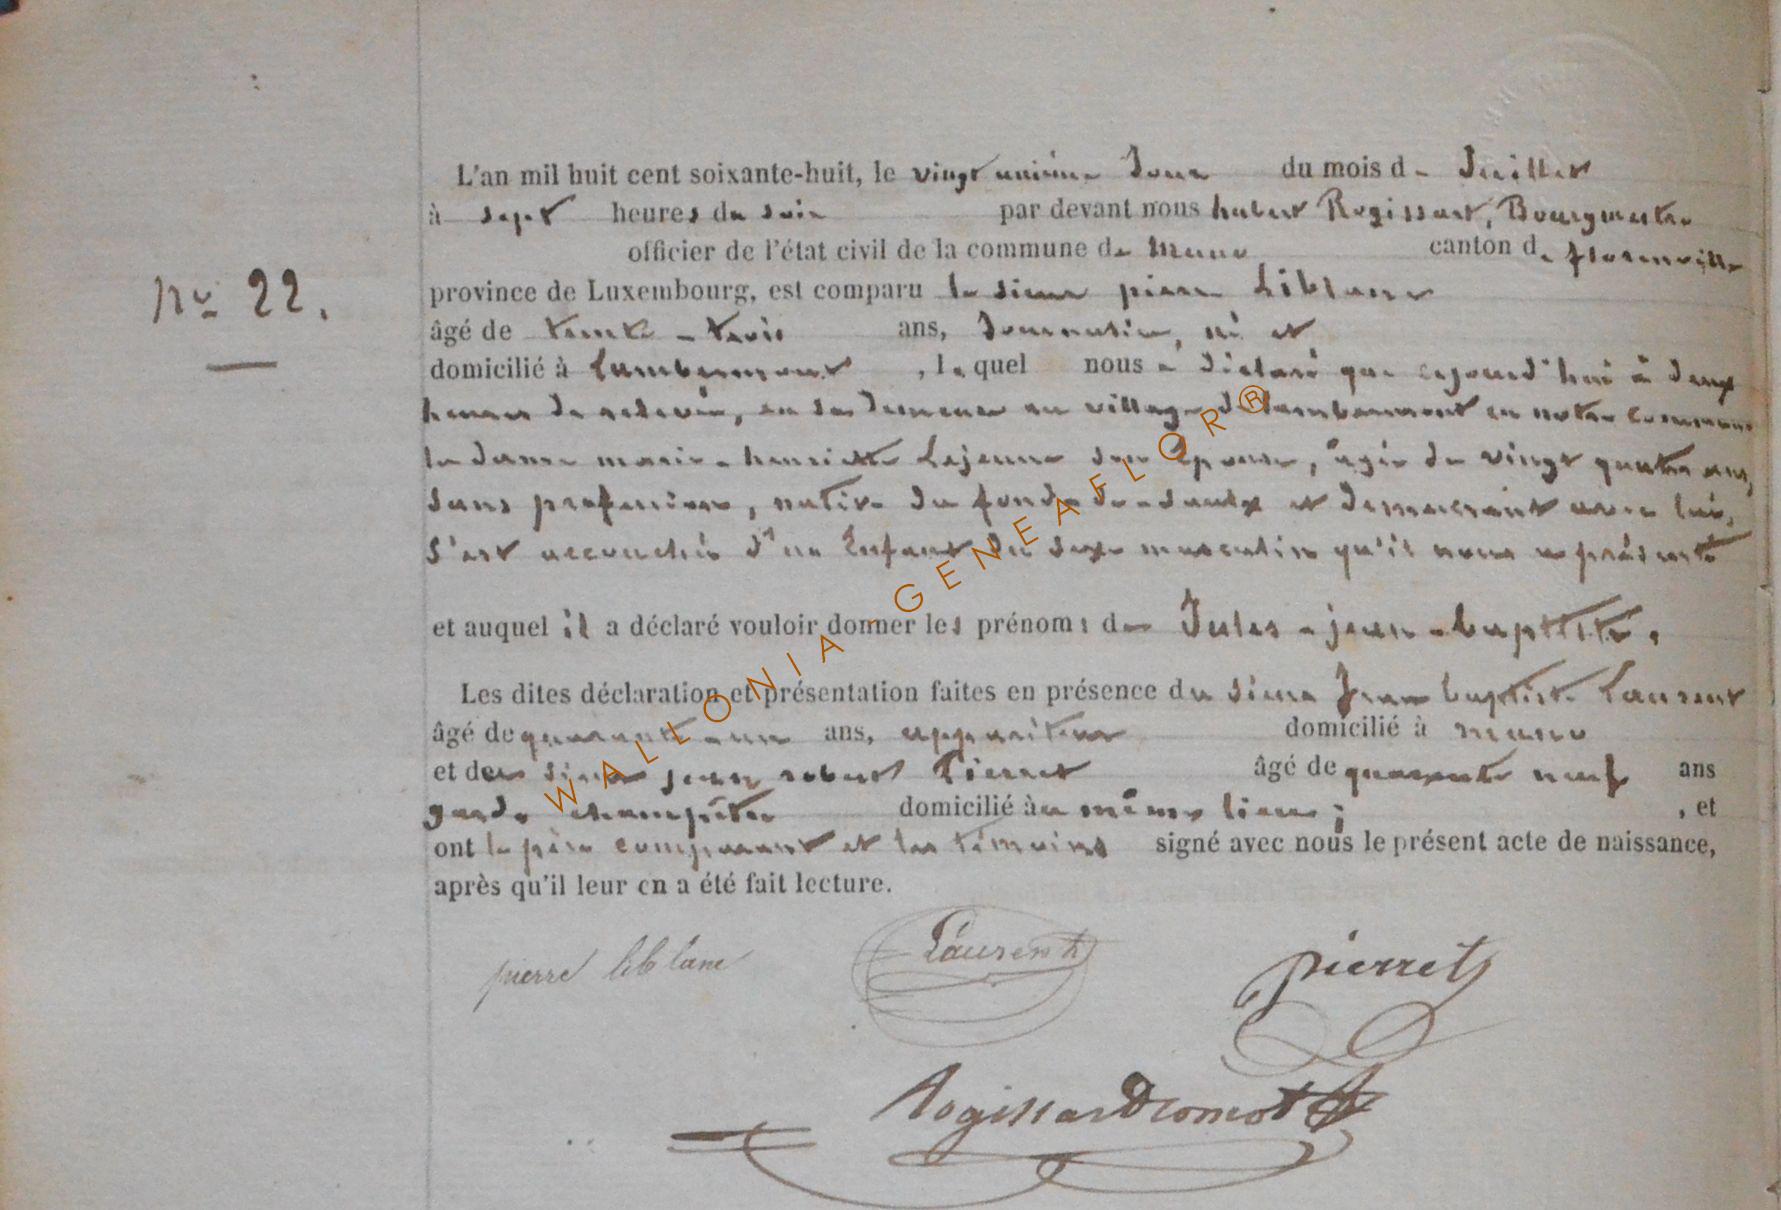 L'an mil huit cent soixante-huit, le vingt unième Jour du mois de Juillet
à sept heures du soir par devant nous hubert Rogissart, Bourgmestre
officier de l'état civil de la commune de muno canton de florenville
N° 22.
province de Luxembourg, est comparu le sieur pierre Liblanc
âgé de trente-trois ans, Journalier, né et
domicilié à Lambermont, lequel nous a déclaré que cejourd'hui à deux
heures de relevée, en sa demeure au village de Lambermont en notre commune
la dame marie-henriette Lejeune son Epouse, âgée de vingt quatre ans,
sans profession, native du fonds-de-daulx et demeurant avec lui,
s'est accouchée d'un Enfant du sexe masculin qu'il nous a présenté
et auquel il a déclaré vouloir donner les prénoms de Jules-jean-baptiste.
Les dites déclaration et présentation faites en présence du sieur Jean baptiste Laurent
âgé de quarante-un ans, appariteur domicilié à muno
et de sieur jean robert Pierret âgé de quarante neuf ans
garde champêtre domicilié au même lieu; , et
ont le père comparant et les témoins signé avec nous le présent acte de naissance,
après qu'il leur en a été fait lecture.
pierre liblanc Laurent pierret
Rogissart
WALLONIA-GENEAFLOR®